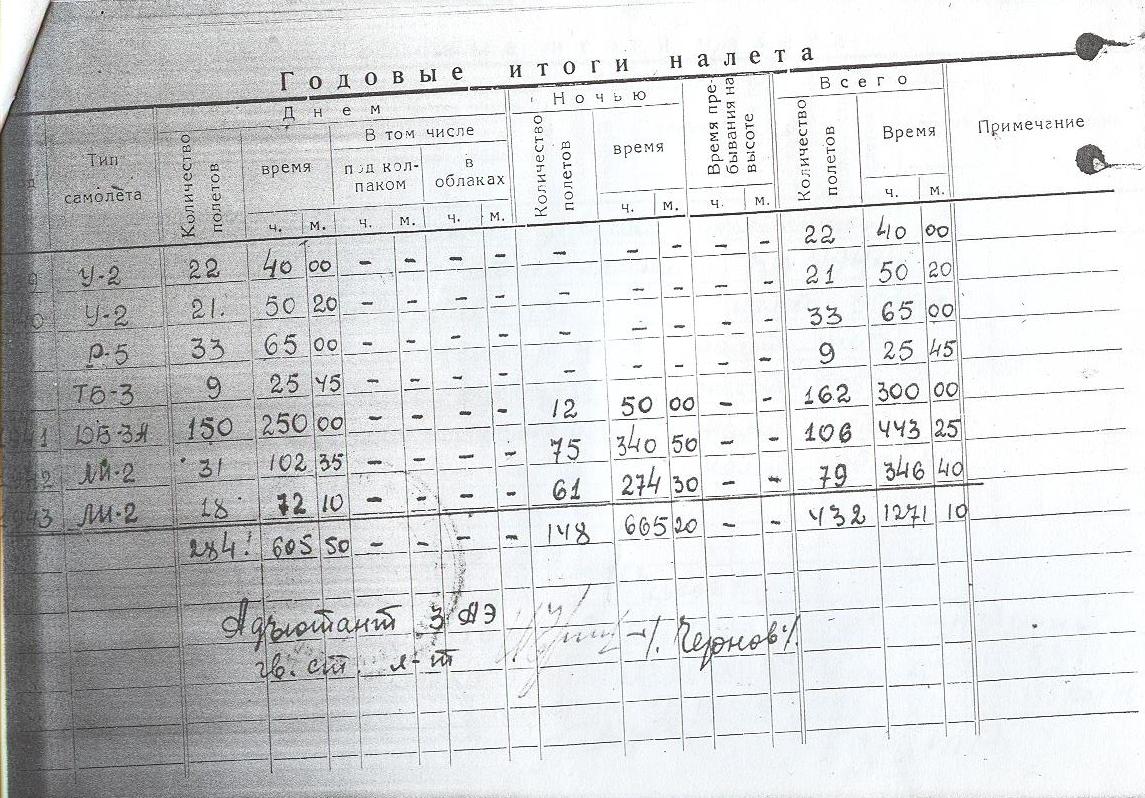 Годовые итоги налета
Тип самолёта
Днем
Количество полетов
время
ч. м.
В том числе
под колпаком
ч. м.
в облаках
ч. м.
Ночью
Количество полетов
время
ч. м.
Время пребывания на высоте
ч. м.
Всего
Количество полетов
Время
ч. м.
Примечание
У-2 22 40 00 - - - - - - - - - 22 40 00
У-2 21. 50 20 - - - - - - - - - 21 50 20
Р-5 33 65 00 - - - - - - - - - 33 65 00
ТБ-3 9 25 45 - - - - - - - - - 9 25 45
1941 ДБ-3А 150 250 00 - - - - 12 50 00 - - 162 300 00
1942 ЛИ-2 31 102 35 - - - - 75 340 50 - - 106 443 25
1943 ЛИ-2 18 72 10 - - - - 61 274 30 - - 79 346 40
284 605 50 - - - - 148 665 20 - - 432 1271 10
Адъютант 3 АЭ
гв. ст. л-т /. Чернов /.